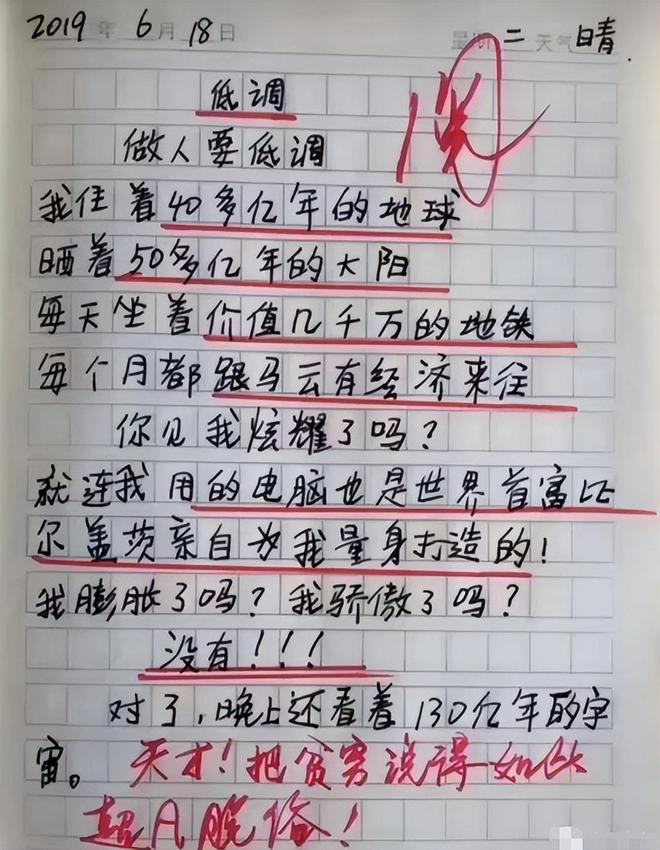 2019年6月18日 星期二 天气晴.
低调
做人要低调
我住着40多亿年的地球
晒着50多亿年的太阳
每天坐着价值几千万的地铁
每个月都跟马云有经济来往
你见我炫耀了吗?
就连我用的电脑也是世界首富比
尔盖茨亲自为我量身打造的!
我膨胀了吗?我骄傲了吗?
没有!!!
对了,晚上还看着130亿年的宇
宙。天才!把贫穷说得如此
超凡脱俗!